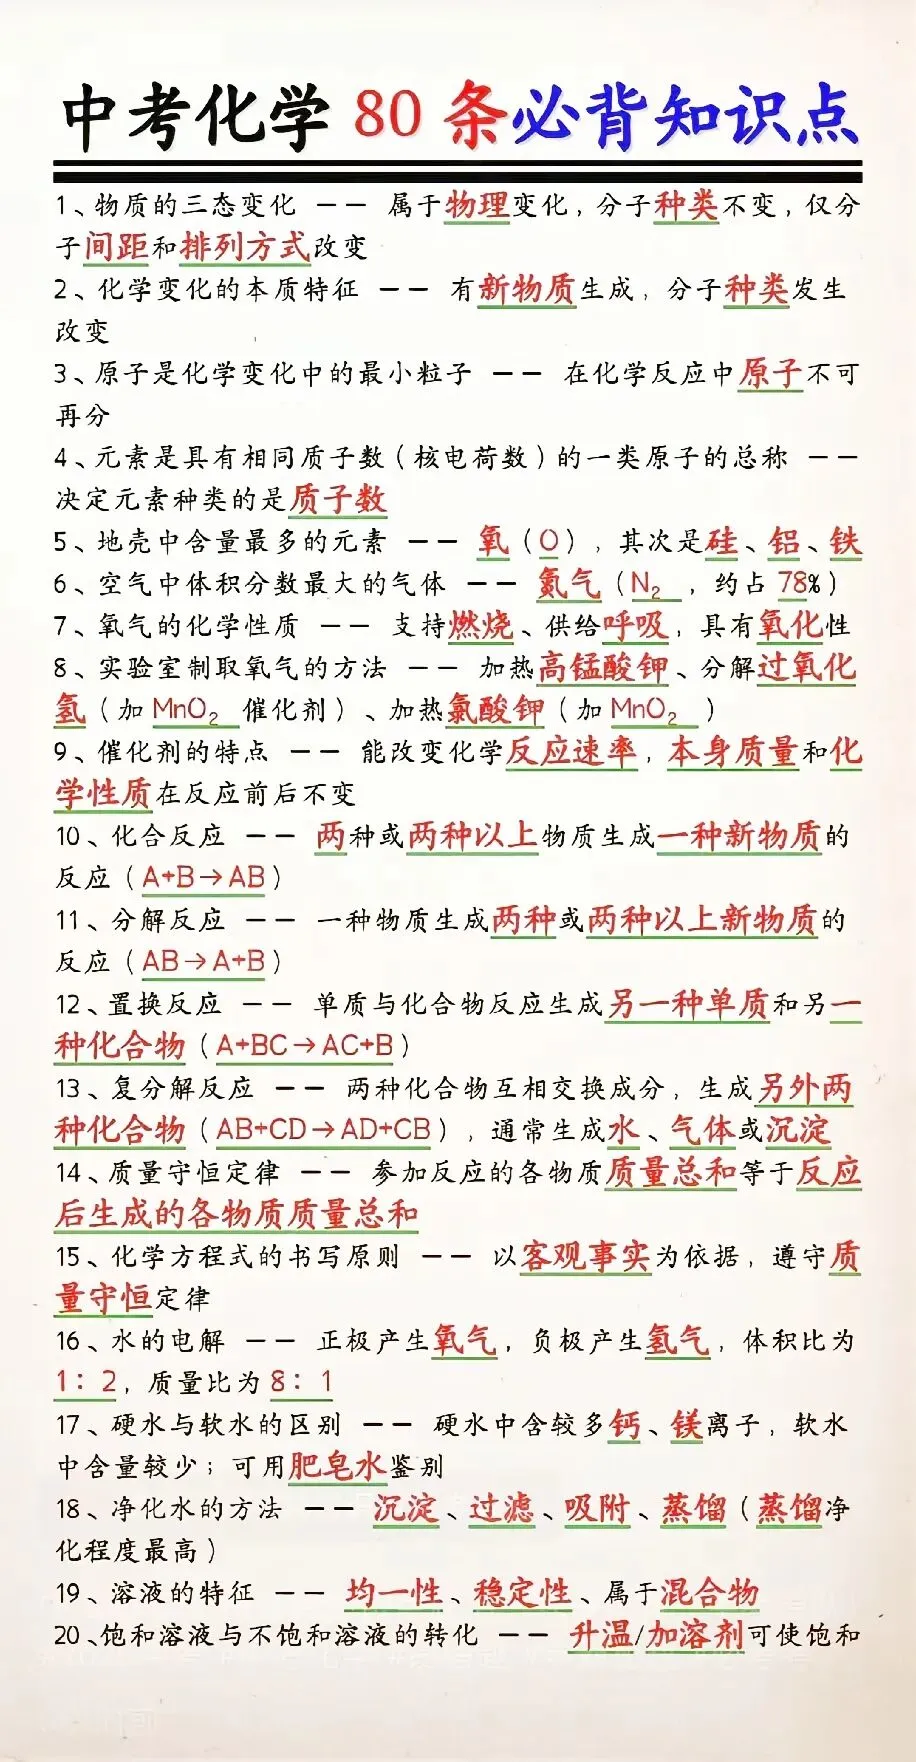 中考化学 80 条必背知识点
1、物质的三态变化 —— 属于物理变化，分子种类不变，仅分
子间距和排列方式改变
2、化学变化的本质特征 —— 有新物质生成，分子种类发生
改变
3、原子是化学变化中的最小粒子 —— 在化学反应中原子不可
再分
4、元素是具有相同质子数（核电荷数）的一类原子的总称 ——
决定元素种类的是质子数
5、地壳中含量最多的元素 —— 氧（O），其次是硅、铝、铁
6、空气中体积分数最大的气体 —— 氮气（N₂ ，约占 78%）
7、氧气的化学性质 —— 支持燃烧、供给呼吸，具有氧化性
8、实验室制取氧气的方法 —— 加热高锰酸钾、分解过氧化
氢（加 MnO₂ 催化剂）、加热氯酸钾（加 MnO₂ ）
9、催化剂的特点 —— 能改变化学反应速率，本身质量和化
学性质在反应前后不变
10、化合反应 —— 两种或两种以上物质生成一种新物质的
反应（A+B→AB）
11、分解反应 —— 一种物质生成两种或两种以上新物质的
反应（AB→A+B）
12、置换反应 —— 单质与化合物反应生成另一种单质和另一
种化合物（A+BC→AC+B）
13、复分解反应 —— 两种化合物互相交换成分，生成另外两
种化合物（AB+CD→AD+CB），通常生成水、气体或沉淀
14、质量守恒定律 —— 参加反应的各物质质量总和等于反应
后生成的各物质质量总和
15、化学方程式的书写原则 —— 以客观事实为依据，遵守质
量守恒定律
16、水的电解 —— 正极产生氧气，负极产生氢气，体积比为
1：2，质量比为 8：1
17、硬水与软水的区别 —— 硬水中含较多钙、镁离子，软水
中含量较少；可用肥皂水鉴别
18、净化水的方法 —— 沉淀、过滤、吸附、蒸馏（蒸馏净
化程度最高）
19、溶液的特征 —— 均一性、稳定性、属于混合物
20、饱和溶液与不饱和溶液的转化 —— 升温/加溶剂可使饱和